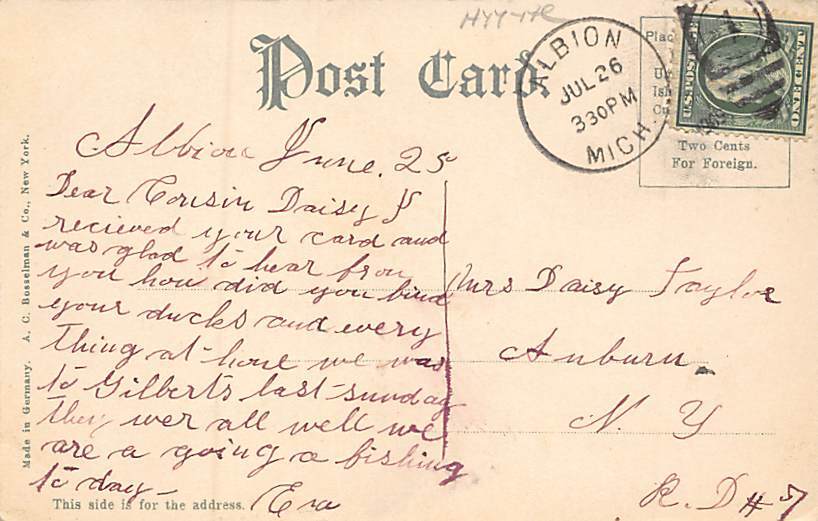 Post Card.
ALBION
JUL 26
330PM
MICH.
Two Cents
For Foreign.
Albion June. 25
Dear Cousin Daisy I
recieved your card and
was glad to hear from
you how did you find
your ducks and every
thing at home we was
to Gilberts last sunday
they wer all well we
are a going a fishing
to day
Eva
Mrs Daisy Taylor
Auburn
N. Y
R. D # 5
This side is for the address.
Made in Germany. A. C. Bosselman & Co., New York.